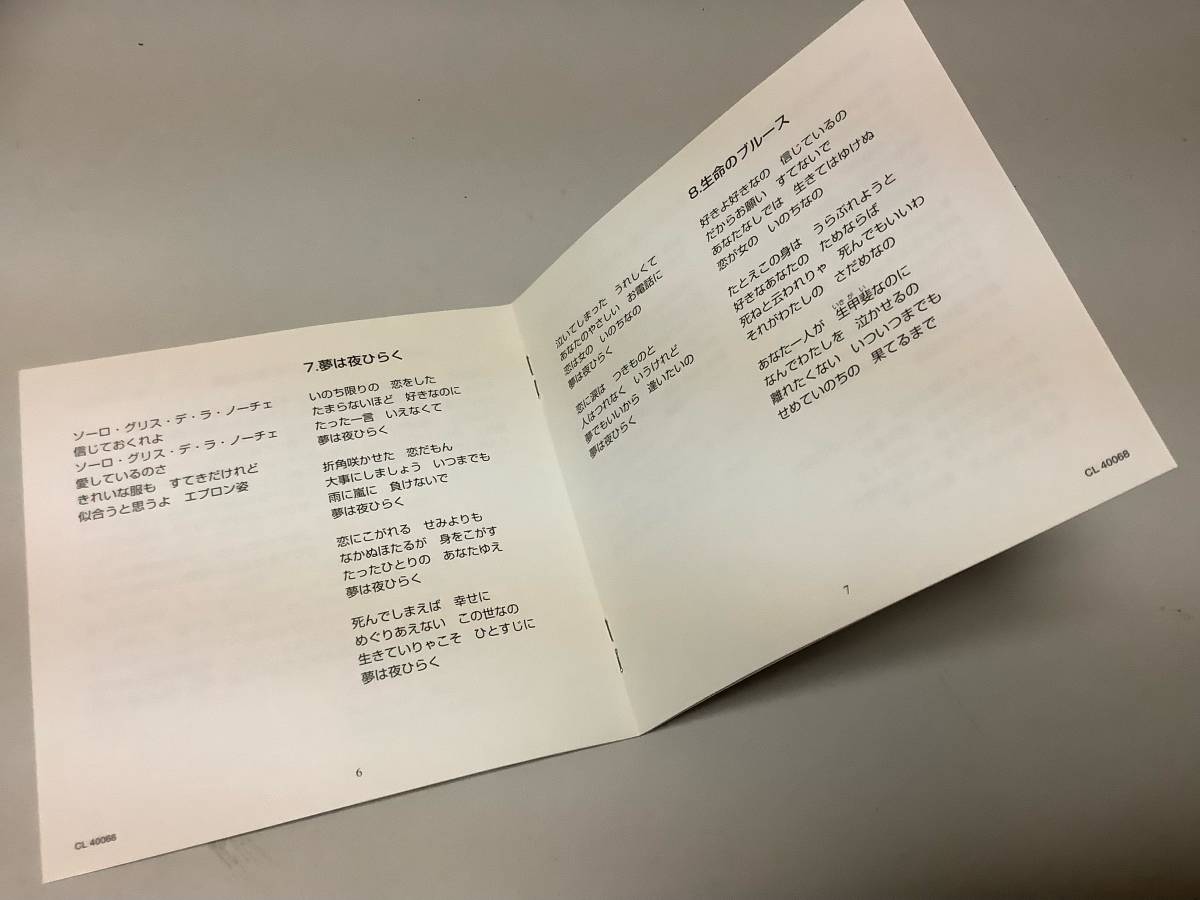 ソーロ・グリス・デ・ラ・ノーチェ
信じておくれよ
ソーロ・グリス・デ・ラ・ノーチェ
愛しているのさ
きれいな服も すてきだけれど
似合うと思うよ エプロン姿
7.夢は夜ひらく
いのち限りの 恋をした
たまらないほど 好きなのに
たった一言 いえなくて
夢は夜ひらく
折角咲かせた 恋だもん
大事にしましょう いつまでも
雨に嵐に 負けないで
夢は夜ひらく
恋にこがれる せみよりも
なかぬほたるが 身をこがす
たったひとりの あなたゆえ
夢は夜ひらく
死んでしまえば 幸せに
めぐりあえない この世なの
生きていりゃこそ ひとすじに
夢は夜ひらく
6
CL 40068
泣いてしまった うれしくて
あなたのやさしい お電話に
恋は女の いのちなの
夢は夜ひらく
恋に涙は つきものと
人はつれなく いうけれど
夢でもいいから 逢いたいの
夢は夜ひらく
8.生命のブルース
好きよ好きなの 信じているの
だからお願い すてないで
あなたなしでは 生きてはゆけぬ
恋が女の いのちなの
たとえこの身は うらぶれようと
好きなあなたの ためならば
死ねと云われりゃ 死んでもいいわ
それがわたしの さだめなの
いきがい
あなた一人が 生甲斐なのに
なんでわたしを 泣かせるの
離れたくない いついつまでも
せめていのちの 果てるまで
7
CL 40068